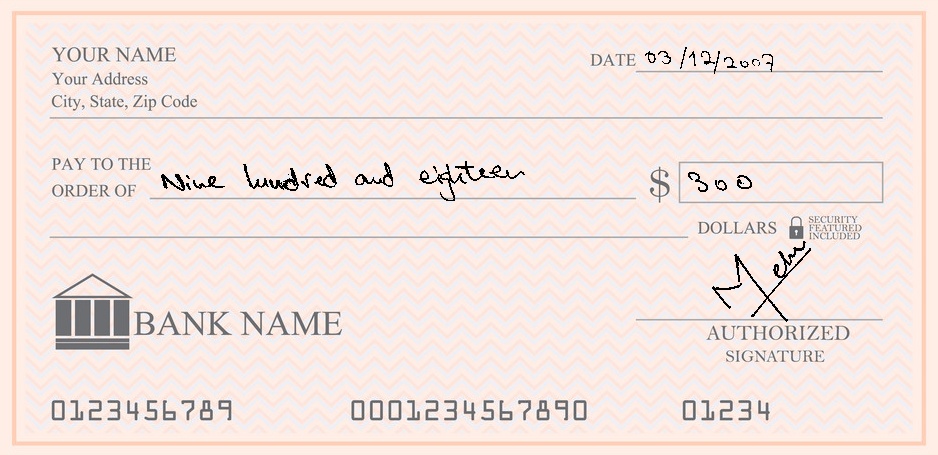 YOUR NAME
Your Address
City, State, Zip Code
DATE 03/12/2007
PAY TO THE
ORDER OF Nine hundred and eighteen $ 300
DOLLARS SECURITY
FEATURED
INCLUDED
BANK NAME
AUTHORIZED
SIGNATURE
0123456789 0001234567890 01234